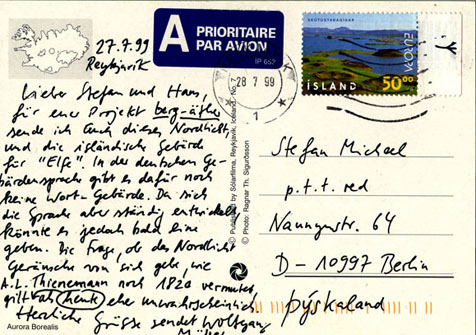 27.7.99
Reykjavik
Lieber Stefan und Hans,
für euer Projekt berg-äther
sende ich Euch dieses Nordlicht
und die isländische Gebärde
für "Elfe". In der deutschen Ge-
bärdensprache gibt es dafür noch
keine Wort-Gebärde. Da sich
die Sprache aber ständig entwickelt,
könnte es jedoch bald eine
geben. Die Frage, ob das Nordlicht
Geräusche von sich gebe, wie
A.L. Thienemann noch 1820 vermutet,
gilt eher unwahrscheinlich.
Herzliche Grüße sendet Wolfgang
Aurora Borealis
A PRIORITAIRE
PAR AVION
IP 652
28 7 99
1
Published by Sólarfilma, Reykjavik, Iceland. No. 7
© Photo: Ragnar Th. Sigurðsson
EUROPA
ÍSLAND 50.00
Stefan Michael
p.t.t. red
Naunynstr. 64
D - 10997 Berlin
Þýskaland